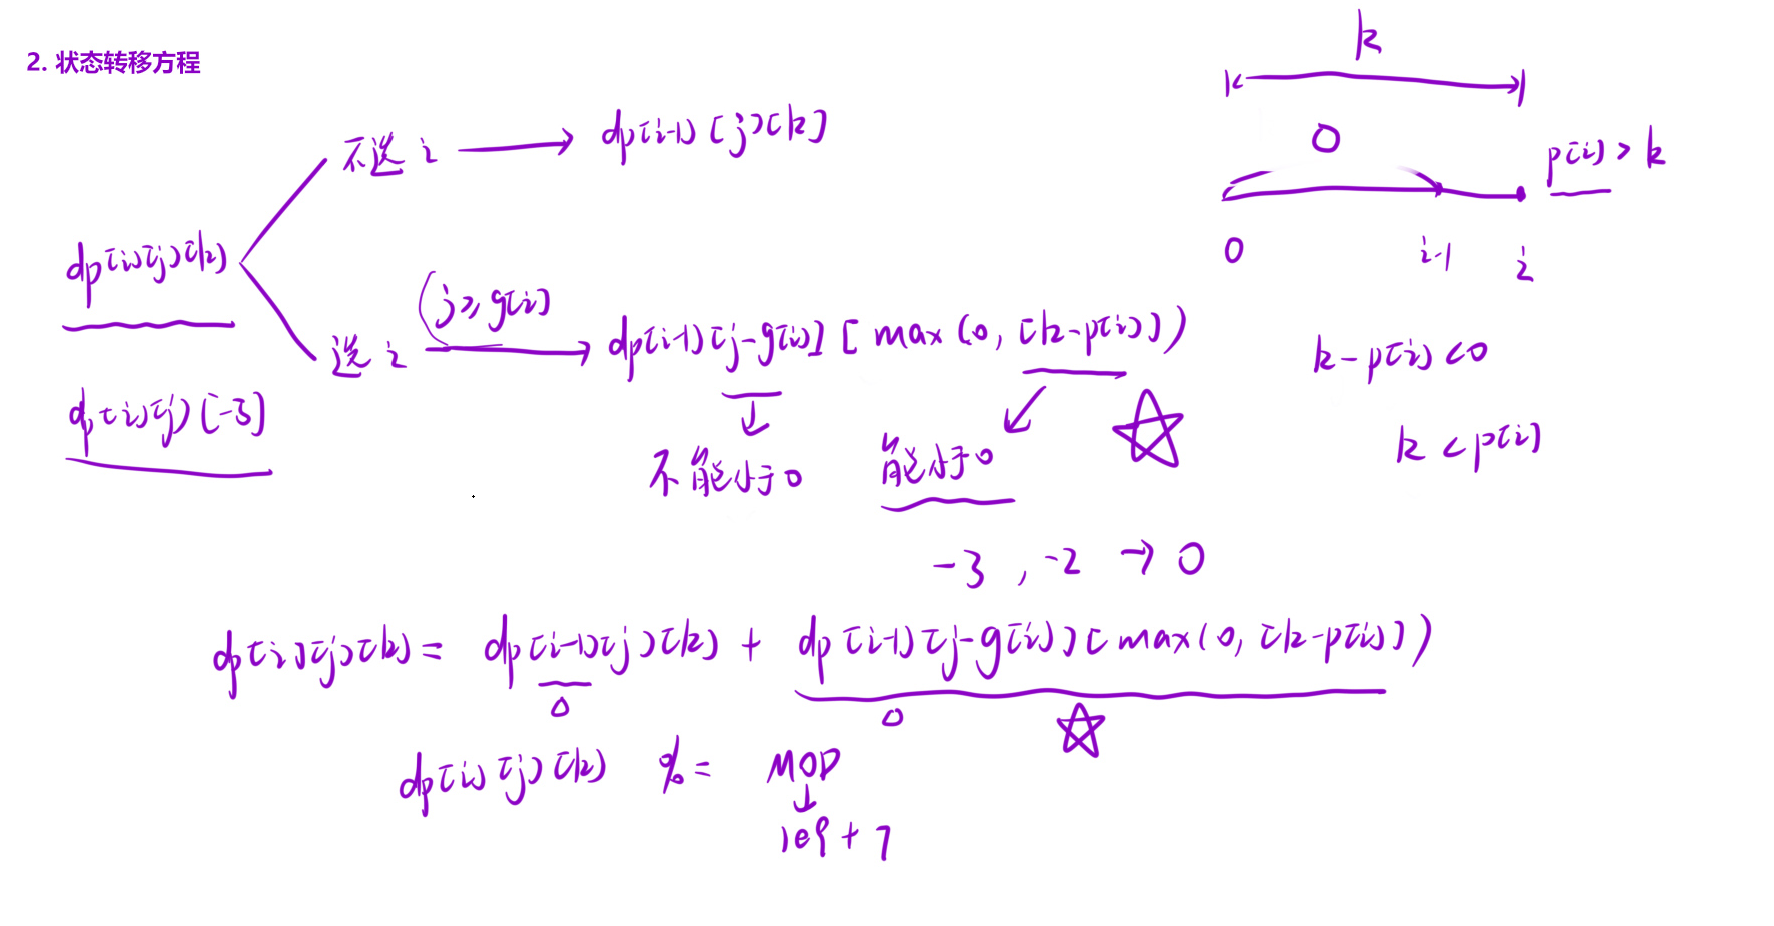 2. 状态转移方程
k
不选 i → dp[i-1][j][k]
0
p[i] > k
dp[i][j][k]
0 i-1 i
(j≥g[i]
选 i → dp[i-1][j-g[i]][max(0, [k-p[i]])
k-p[i]<0
dp[i][j][-3]
不能小于0 能小于0
k<p[i]
-3 , -2 → 0
dp[i][j][k] = dp[i-1][j][k] + dp[i-1][j-g[i]][max(0, [k-p[i]])
0 0
dp[i][j][k] %= MOD
1e9+7